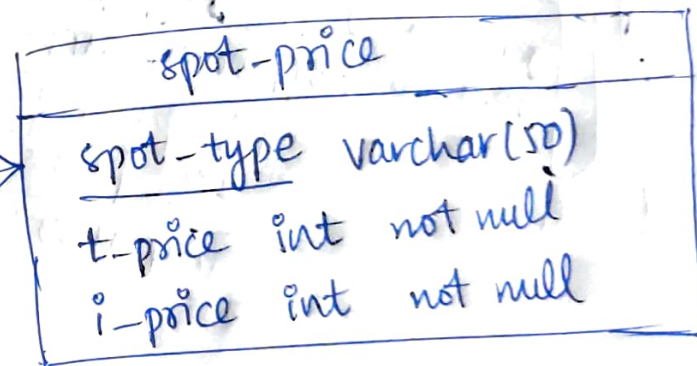 spot-price
spot-type varchar(50)
t-price int not null
i-price int not null